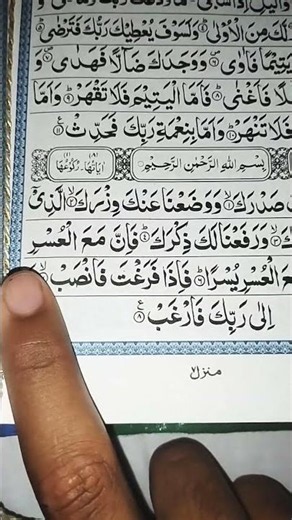 لَكَ مِنَ الْاُوْلٰى ؕ وَلَسَوْفَ يُعْطِيْكَ رَبُّكَ فَتَرْضٰى
يَتِيْمًا فَاٰوٰى ۪ ﴿۶﴾ وَوَجَدَكَ ضَآلًّا فَهَدٰى ۪ ﴿۷﴾ وَ
لًا فَاَغْنٰى ؕ ﴿۸﴾ فَاَمَّا الْيَتِيْمَ فَلَا تَقْهَرْ ؕ ﴿۹﴾ وَاَمَّا
فَلَا تَنْهَرْ ؕ ﴿۱۰﴾ وَاَمَّا بِنِعْمَةِ رَبِّكَ فَحَدِّثْ ﴿۱۱﴾
بِسْمِ اللّٰهِ الرَّحْمٰنِ الرَّحِيْمِ اٰيَاتُهَا ۸ رُكُوْعُهَا ۱
صَدْرَكَ ۙ ﴿۱﴾ وَوَضَعْنَا عَنْكَ وِزْرَكَ ۙ ﴿۲﴾ الَّذِيْٓ
كَ ۙ ﴿۳﴾ وَرَفَعْنَا لَكَ ذِكْرَكَ ؕ ﴿۴﴾ فَاِنَّ مَعَ الْعُسْرِ
عَ الْعُسْرِ يُسْرًا ؕ ﴿۶﴾ فَاِذَا فَرَغْتَ فَانْصَبْ ۙ ﴿۷﴾
اِلٰى رَبِّكَ فَارْغَبْ ﴿۸﴾
منزل